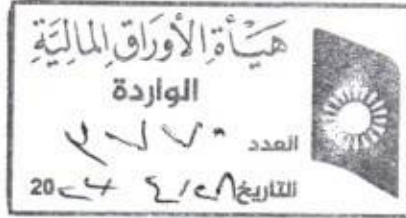 هَيْأَةُ الأَوْرَاقِ المَالِيَّةِ
الواردة
العدد
التاريخ ٤/٢٨ 20